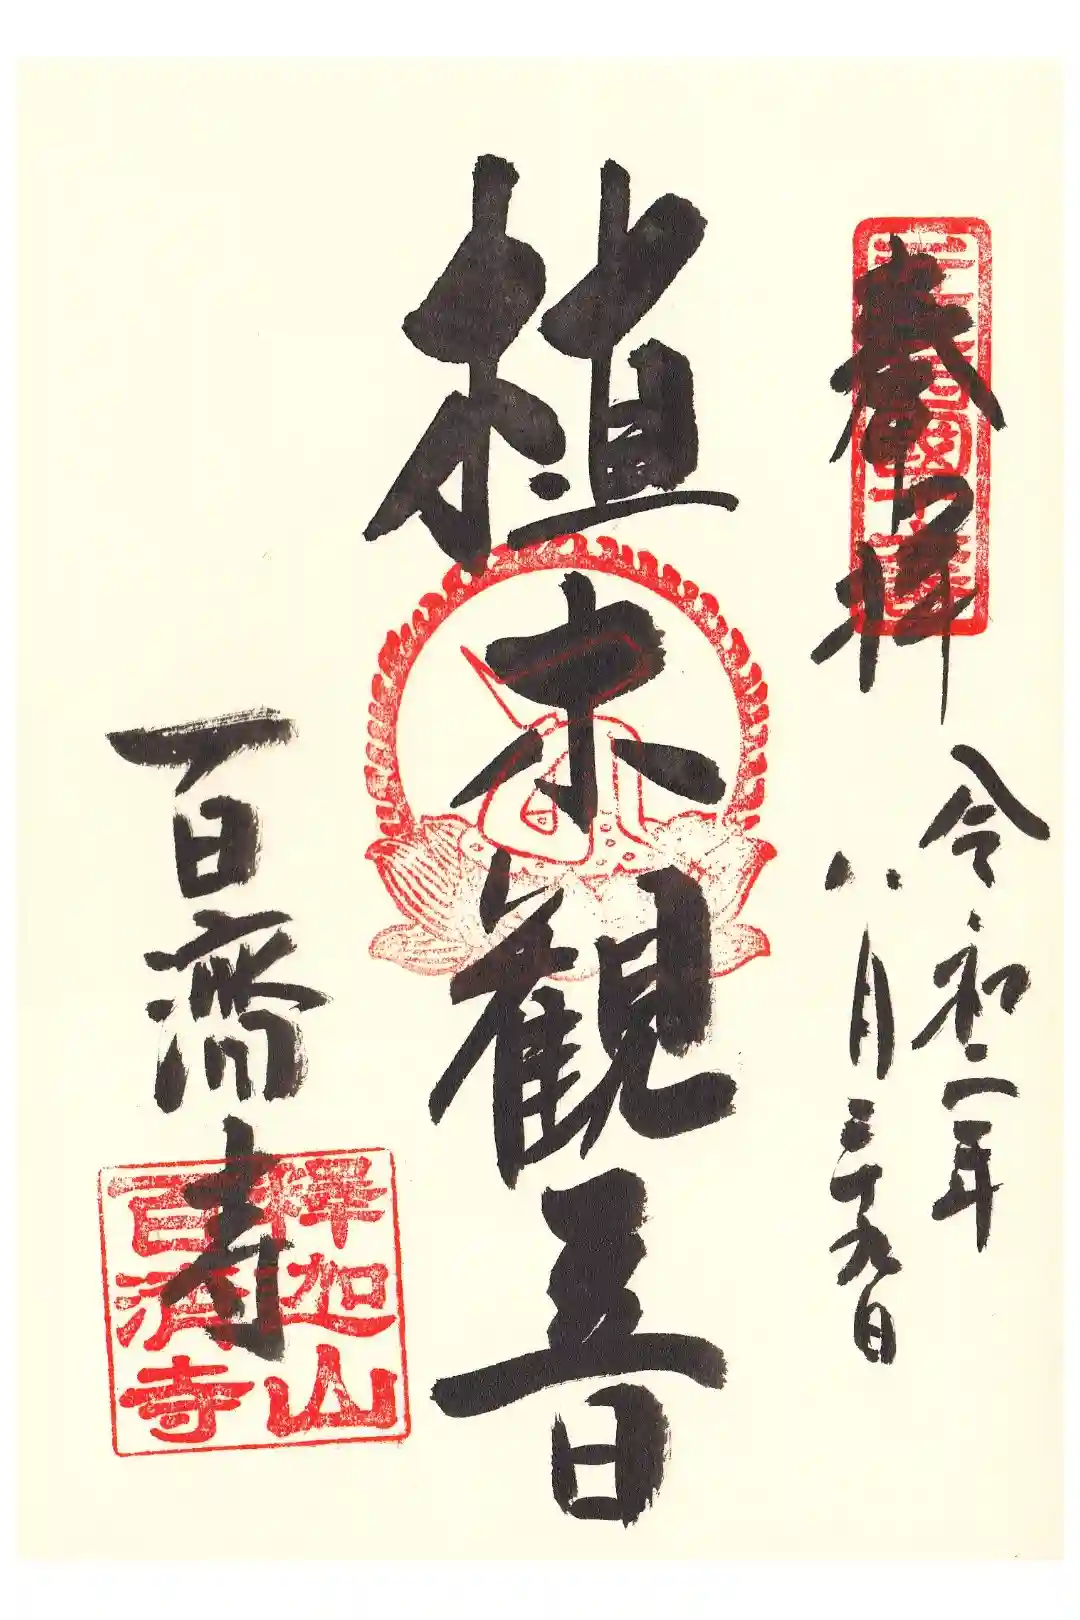 奉拝
令和二年
八月二十九日
植木観音
百済寺
釋迦山
百済寺